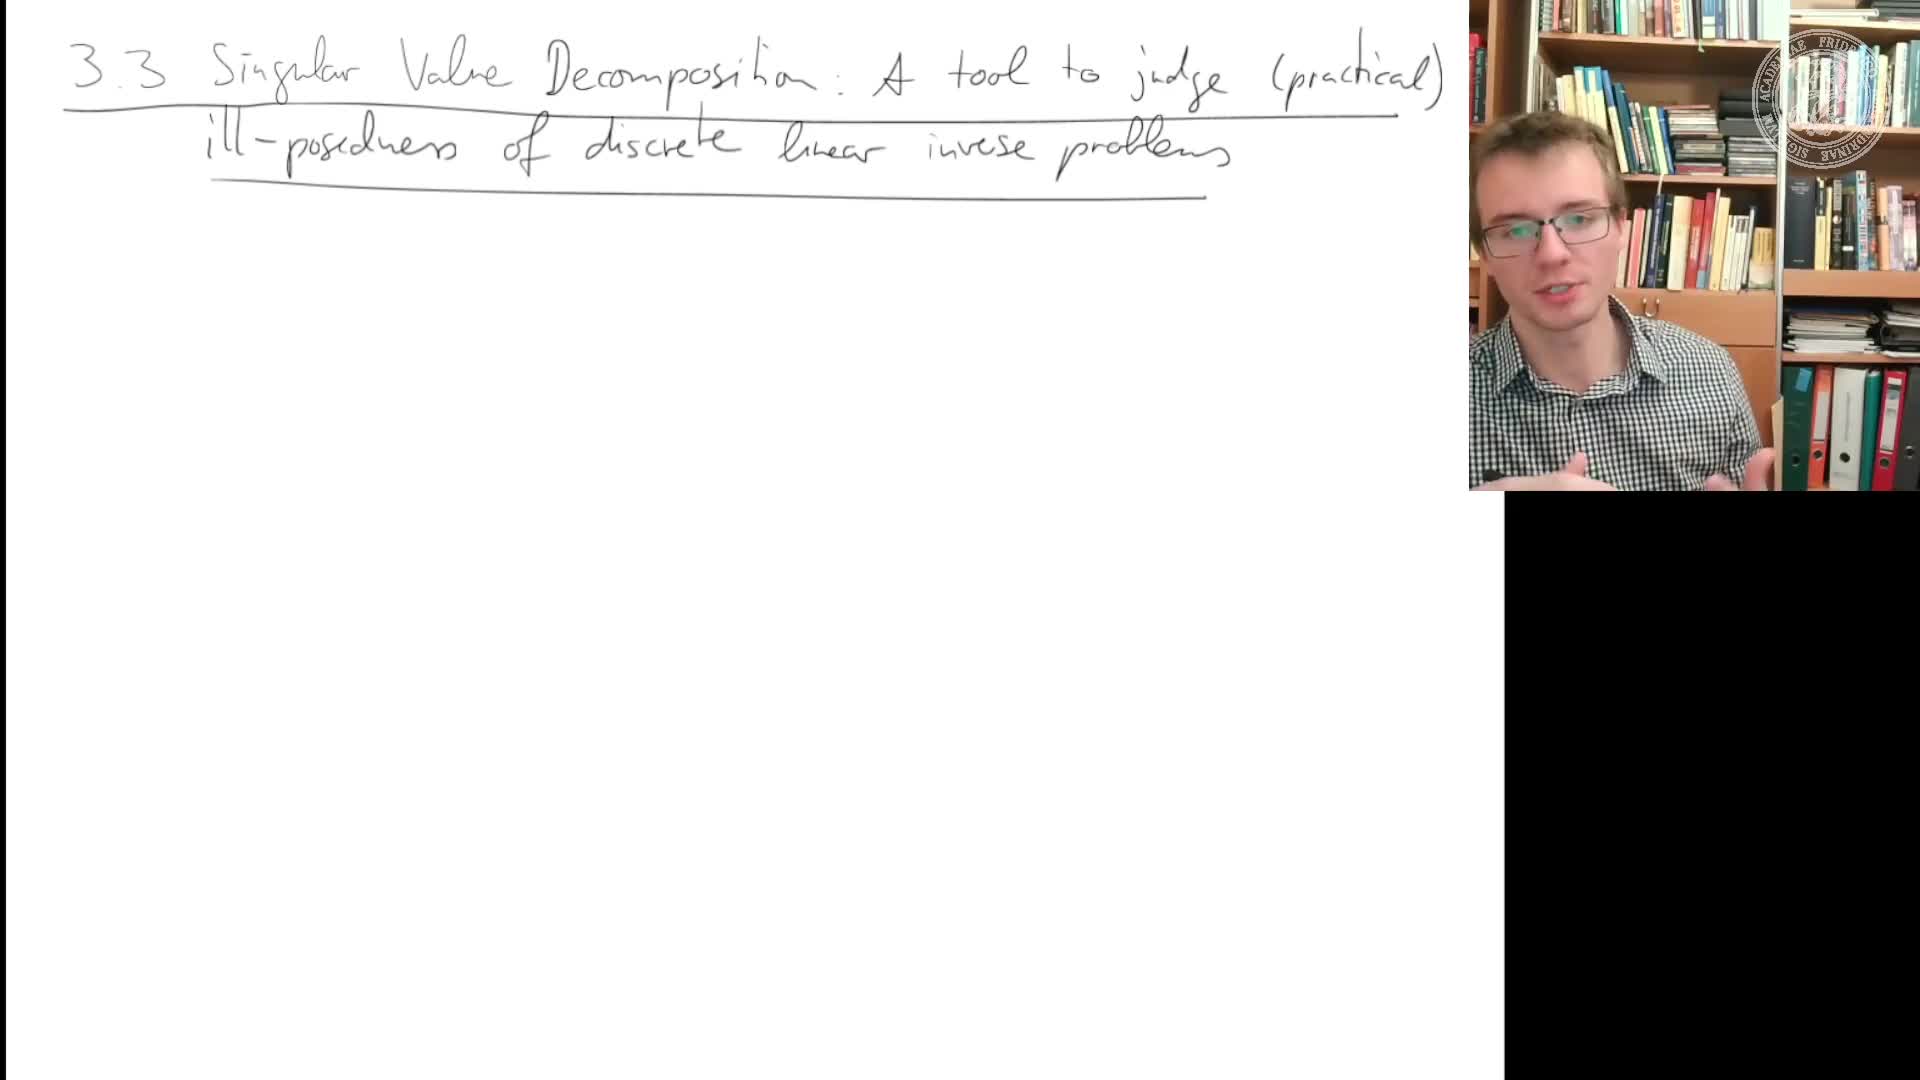 3.3 Singular Value Decomposition: A tool to judge (practical)
ill-posedness of discrete linear invese problems